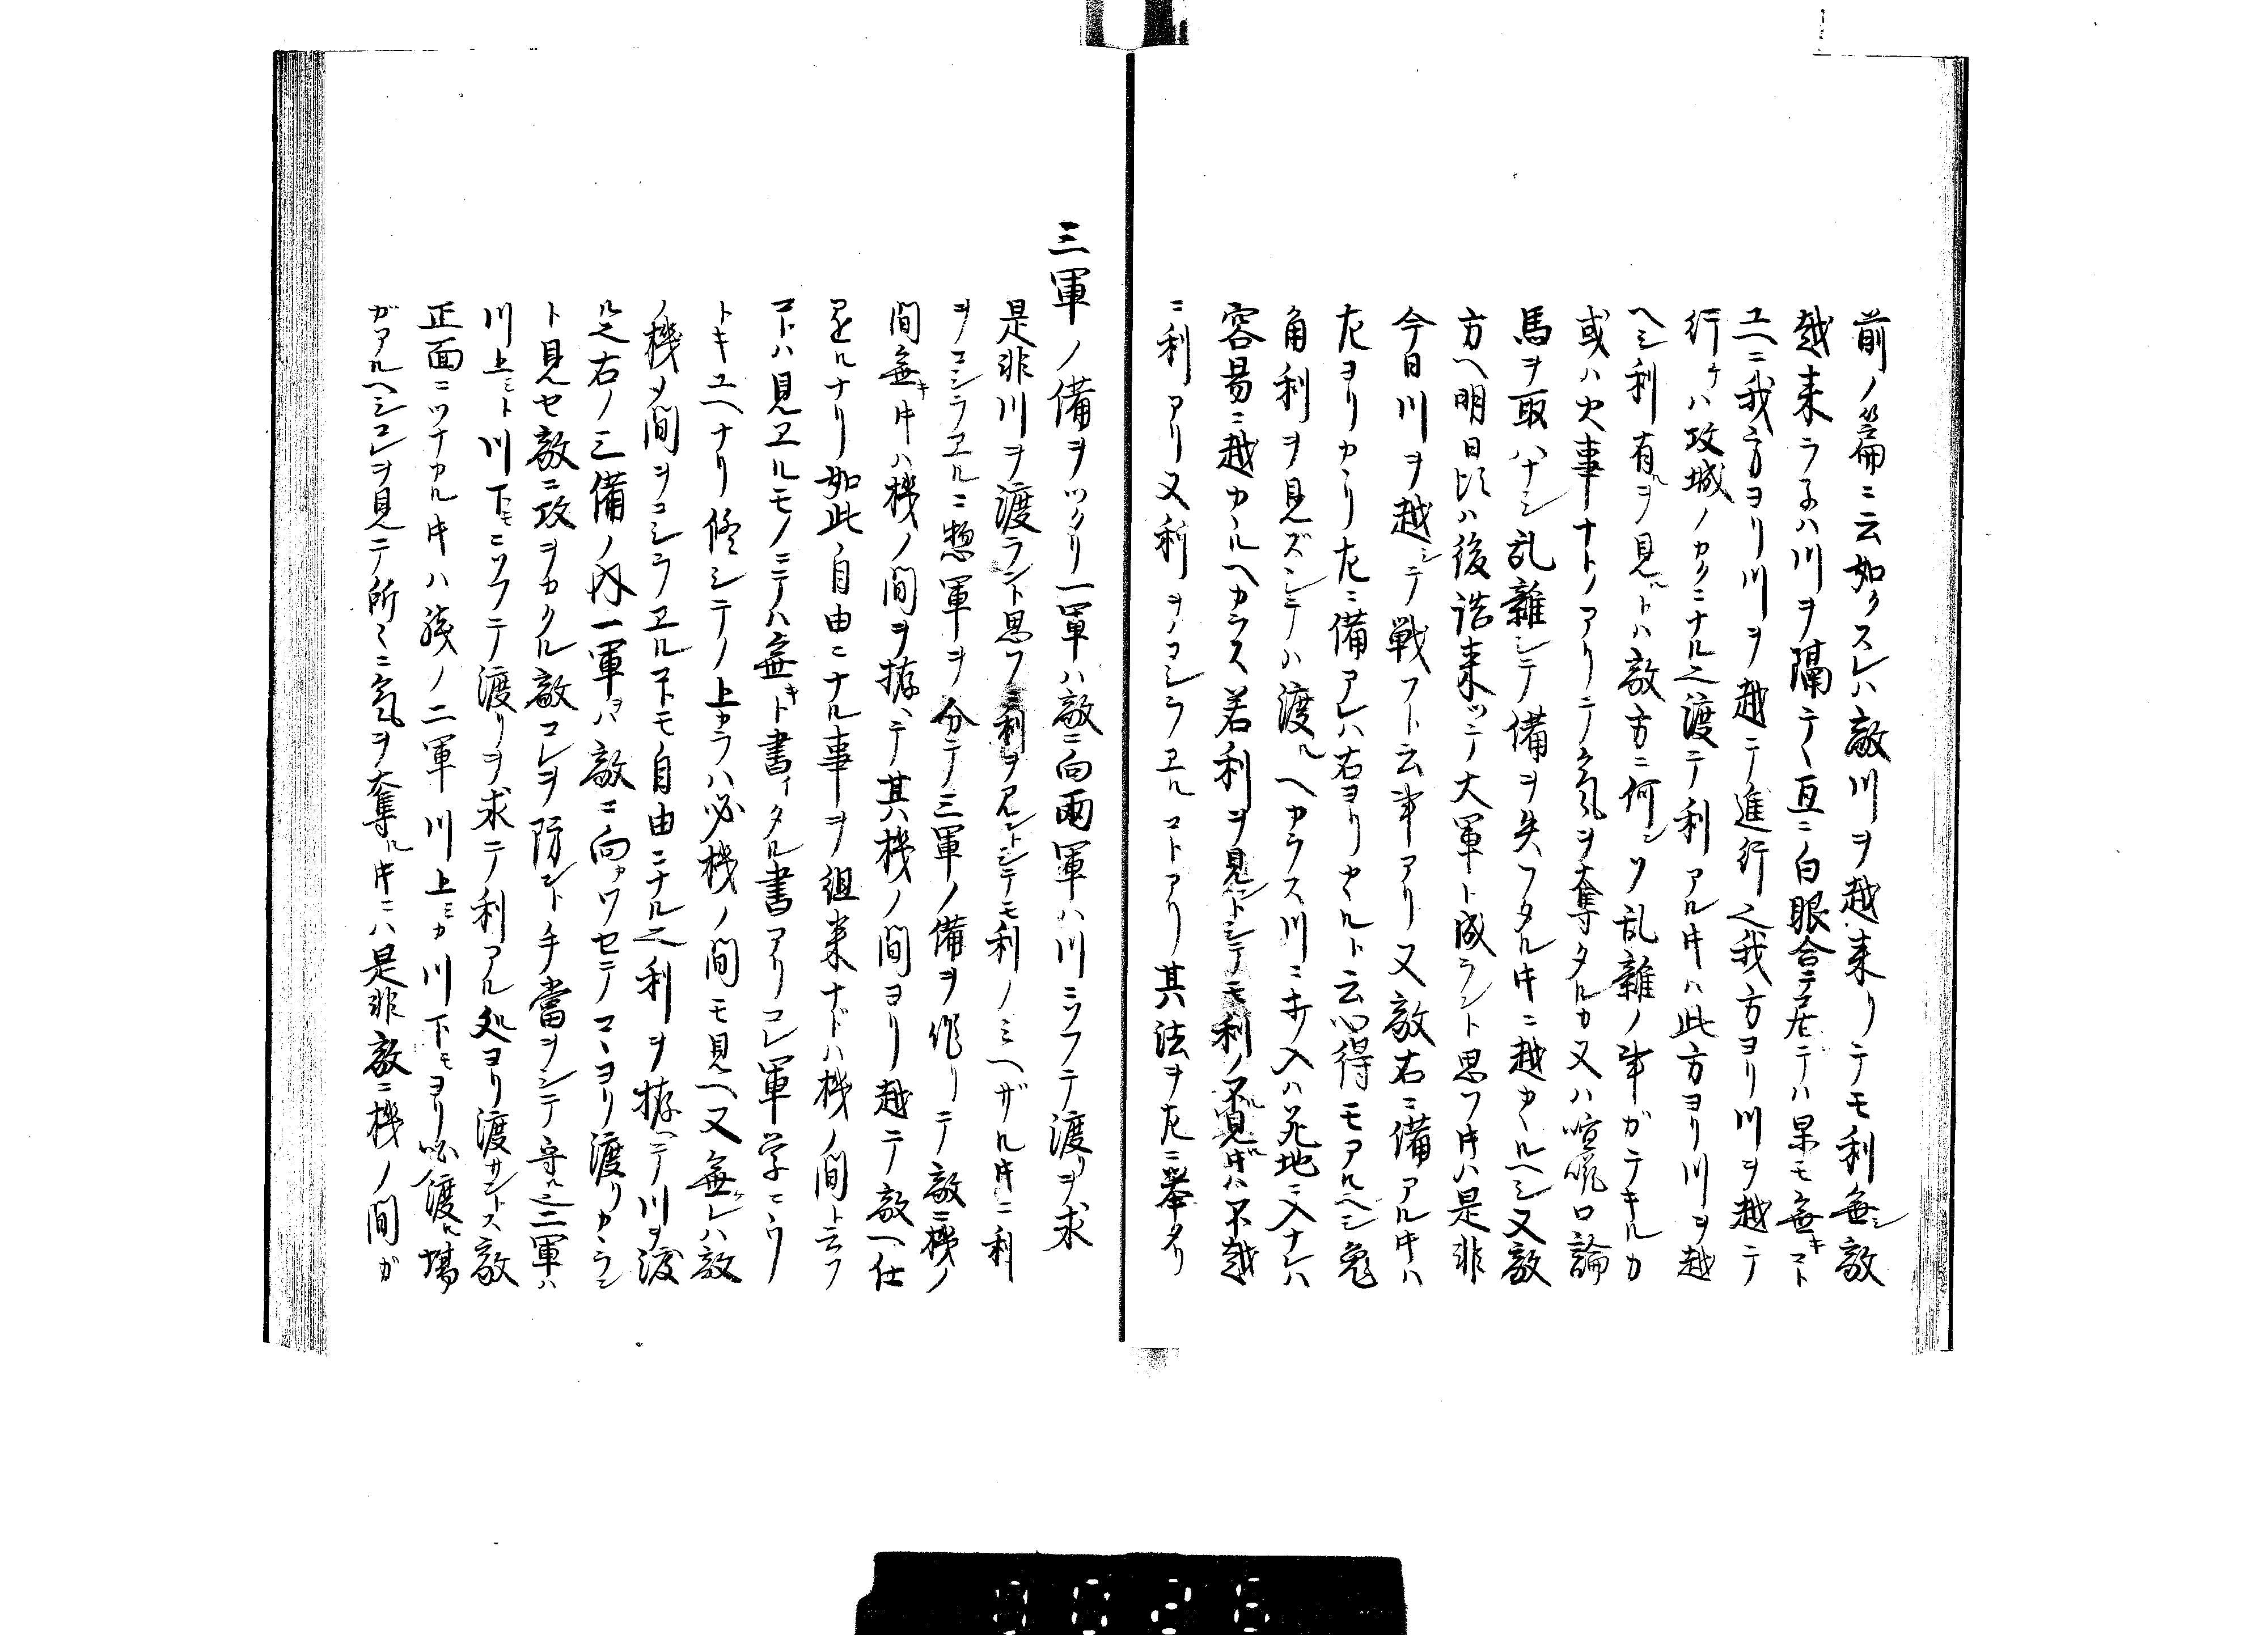 前ノ篇ニ云如クスレハ敵川ヲ越来リテモ利無シ敵
越来ラネハ川ヲ隔テヽ互ニ白眼合テ居テハ果モ無キコト
ユヘニ我方ヨリ川ヲ越テ進行也我方ヨリ川ヲ越テ
行ケハ攻城ノカタニナル也渡テ利アル圷ハ此方ヨリ川ヲ越
ヘシ利有ルヲ見ルトハ敵方ニ何ンソ乱雑ノ事ガテキルカ
或ハ火事ナトノアリテ気ヲ奪タルカ又ハ喧𠵅口論
馬ヲ取ハナシ乱雑シテ備ヲ失フタル圷ニ越カヽルヘシ又敵
方ヘ明日比ハ後詰来ツテ大軍ト成ラント思フ圷ハ是非
今日川ヲ越シテ戦フト云事アリ又敵右ニ備アル圷ハ
左ヨリカヽリ左ニ備アレハ右ヨリカヽルト云心得モアルヘシ兔
角利ヲ見ズシテハ渡ルヘカラス川ニ打入ハ死地ニ入ナレハ
容易ニ越カヽルヘカラス若利ヲ見ントシテモ利ノ不見ザレハ不越
ニ利アリ又利ヲコシラエルコトアリ其法ヲ左ニ挙タリ
三軍ノ備ヲツクリ一軍ハ敵ニ向両軍ハ川ニソフテ渡リヲ求
是非川ヲ渡ラント思フニ利ヲ見ントシテモ利ノミヘザル圷ニ利
ヲコシラエルニ惣軍ヲ分テ三軍ノ備ヲ作リテ敵ニ機ノ
間無キ圷ハ機ノ間ヲ拵ヘテ其機ノ間ヨリ越テ敵ヘ仕
マルナリ如此自由ニナル事ヲ組来ナドハ機ノ間ト云フ
コトハ見エルモノニテハ無キト書イタル書アリコレ軍学ニウ
トキユヘナリ修シテノ上カラハ必機ノ間モ見ヘ又無ケレハ敵
ノ機ノ間ヲコシラエルコトモ自由ニナル也利ヲ拵ヘテ川ヲ渡
ル也右ノ三備ノ内一軍ヲハ敵ニ向ハセテコヽヨリ渡リカヽラン
ト見セ敵ニ攻ヲカクル敵コレヲ防ント手當ヲシテ守ル二軍ハ
川上ミト川下モニソフテ渡リヲ求テ利アル処ヨリ渡サントス敵
正面ニツナカル圷ハ残ノ二軍川上ミカ川下モヨリ必渡ル場
ガアルヘシコレヲ見テ所々ニ気ヲ奪ル圷ニハ是非敵ニ機ノ間ガ